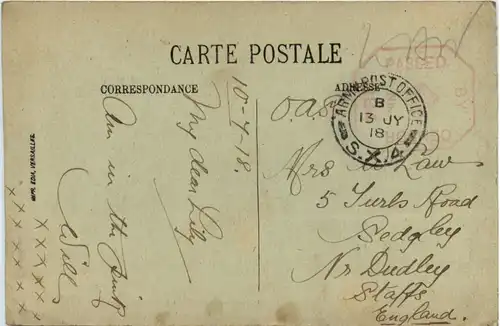 CARTE POSTALE
CORRESPONDANCE
ADRESSE
10-7-18.
My dear Lily
Am in the pink
Will
x x x x x
x x x x x
IMP. EDIA, VERSAILLES
O.A.S.
ARMY POST OFFICE
B
13 JY
18
S.X.4.
PASSED
BY
Mrs W Law
5 Turls Road
Sedgley
Nr Dudley
Staffs
England.